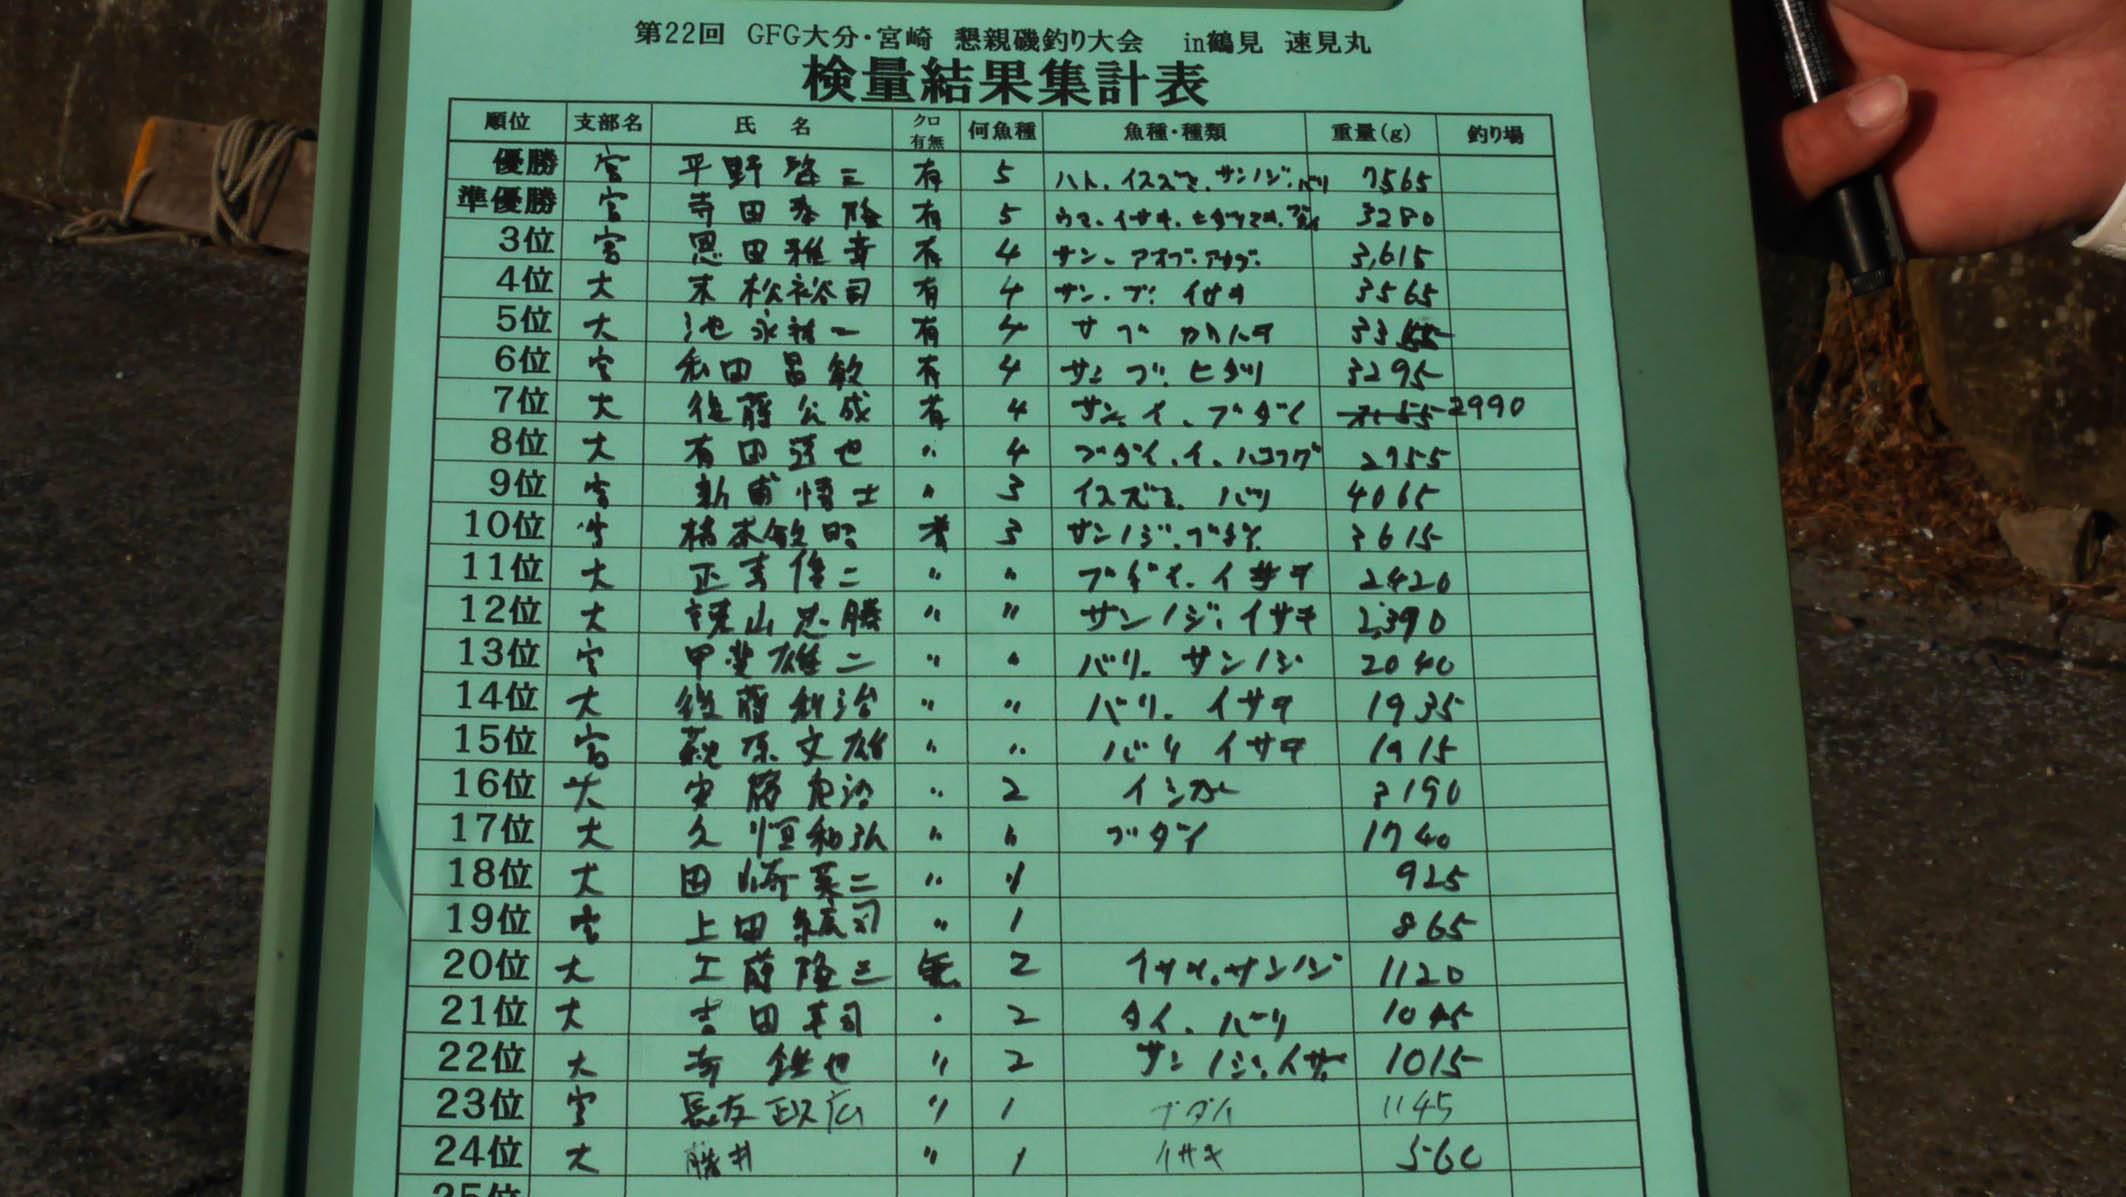 第22回 GFG大分・宮崎 懇親磯釣り大会 in鶴見 速見丸
検量結果集計表
順位 支部名 氏名 クロ有無 何魚種 魚種・種類 重量(g) 釣り場
優勝 宮 平野 三 有 5 ハト、イスズミ、サンノジ、バリ 7565
準優勝 宮 寺田 隆 有 5 ウマ、イサキ、 3280
3位 宮 恩田雅幸 有 4 サン、アオブ、アカブ 3,615
4位 大 末松裕司 有 4 サン、ブ、イサキ 3565
5位 大 池永 二 有 4 サ ブ 3355
6位 宮 和田昌敏 有 4 サン ブ ヒダリ 3295
7位 大 後藤公成 有 4 サン、イ、ブダイ 2990
8位 大 有田 也 〃 4 ブダイ、イ、ハコフグ 2755
9位 宮 新甫悟士 〃 3 イスズミ、バリ 4065
10位 宮 橋本敏昭 有 3 サンノジ、ブダイ 3615
11位 大 正 俊二 〃 〃 ブダイ、イサキ 2420
12位 大 横山忠勝 〃 〃 サンノジ、イサキ 2,390
13位 宮 甲斐雄二 〃 〃 バリ、サンノジ 2040
14位 大 後藤利治 〃 〃 バリ、イサキ 1935
15位 宮 萩原文雄 〃 〃 バリ イサキ 1915
16位 大 安藤 治 〃 2 イシガキ 3190
17位 大 久恒和弘 〃 〃 ブダイ 1740
18位 大 田崎英二 〃 〃 925
19位 宮 上田 司 〃 1 865
20位 大 工藤隆三 無 2 イサキ、サンノジ 1120
21位 大 吉田 司 〃 2 タイ、バリ 1045
22位 大 寺 也 〃 2 サンノジ、イサキ 1015
23位 宮 長友政広 〃 1 ブダイ 1145
24位 大 藤井 〃 1 イサキ 560